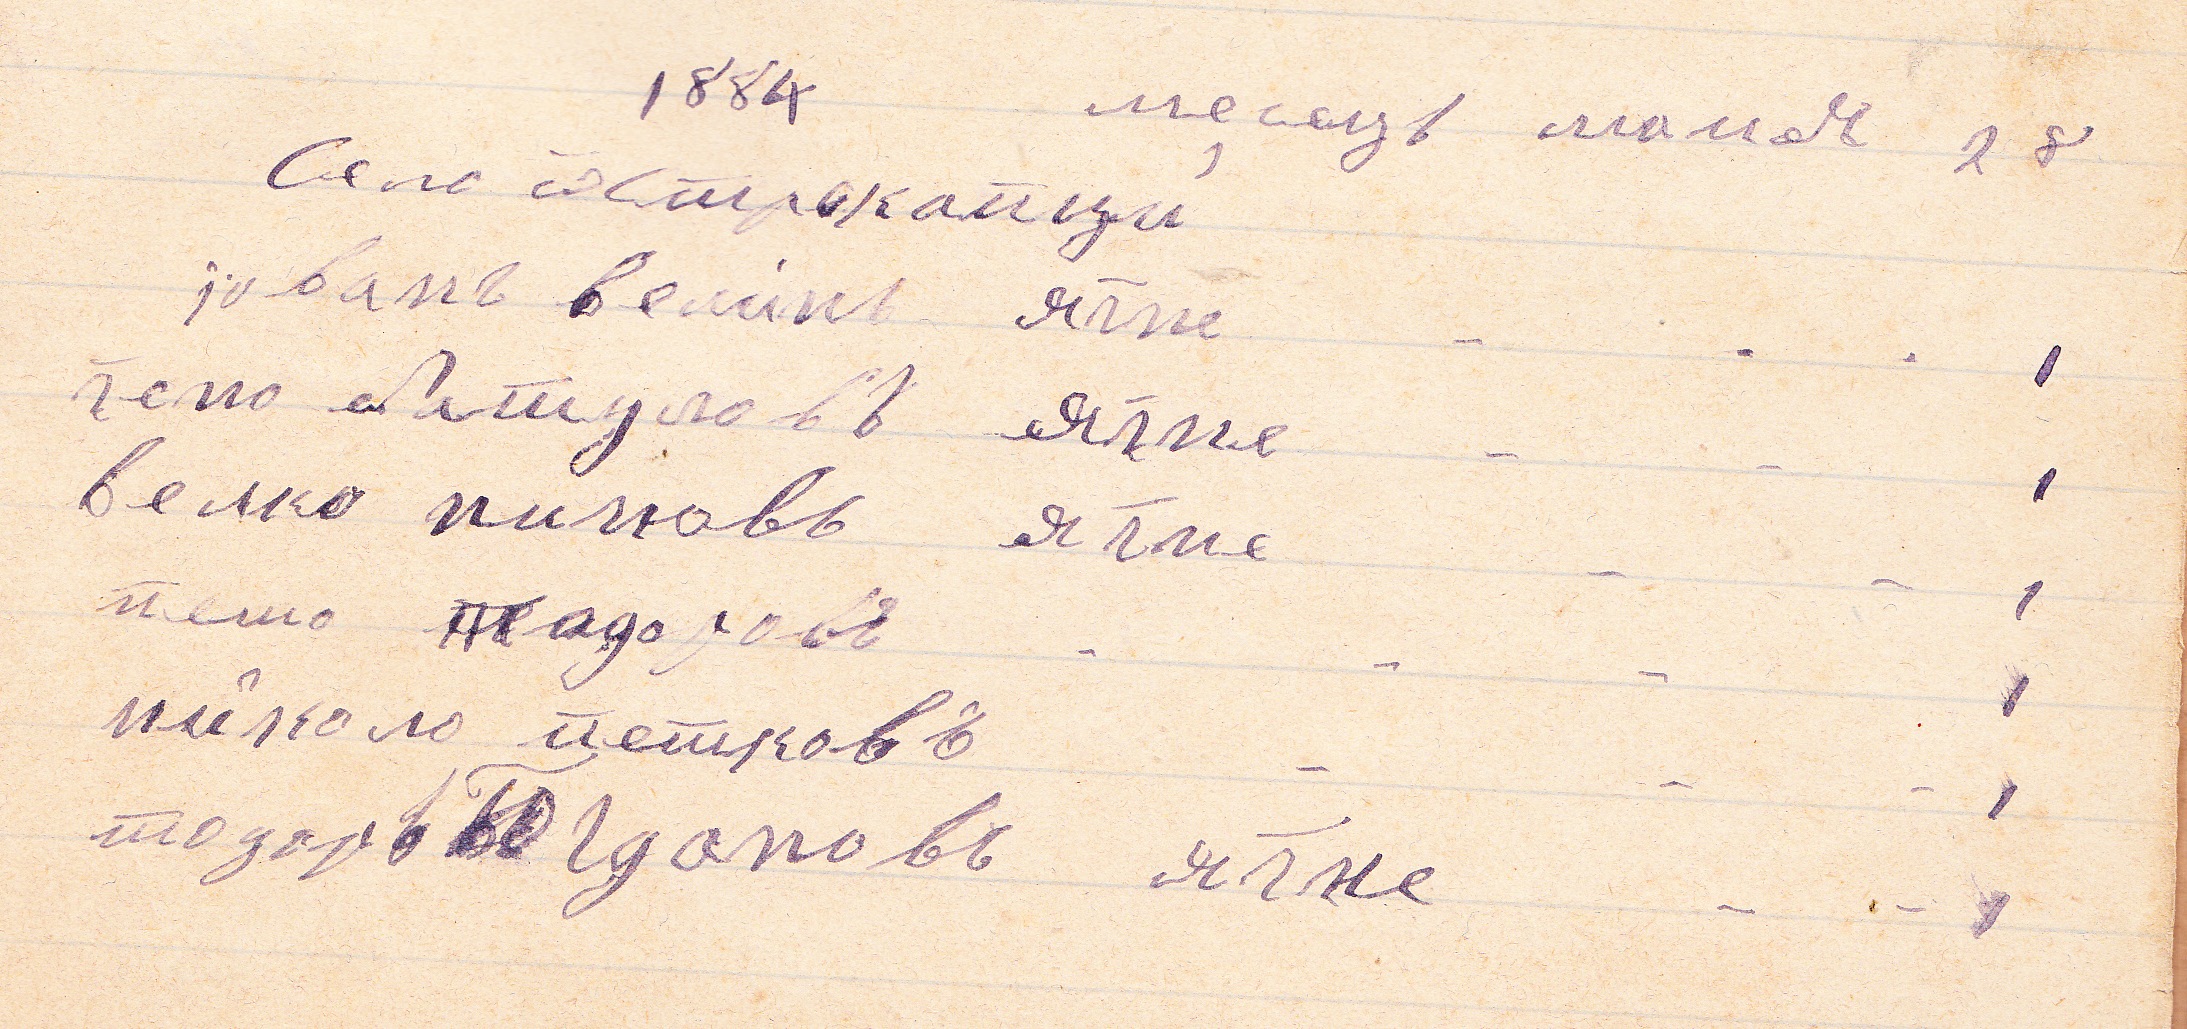 1884 месецъ маия 28
Село ѿстрокапци
јованъ велинъ ягне - - - 1
гено ѿатуловъ ягне - - 1
велко пиновъ ягне - - 1
пешо тадоровъ - - - 1
никола петковъ - - - 1
тодоръ Богдановъ ягне - - 1